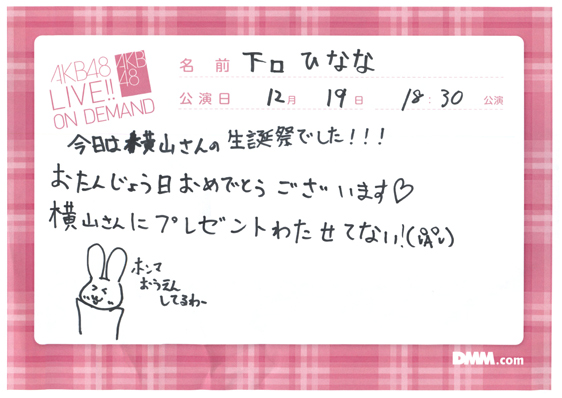 AKB48
LIVE!!
ON DEMAND
AKB
48
名前 下口ひなな
公演日 12月 19日 18:30 公演
今日は横山さんの生誕祭でした!!!
おたんじょう日おめでとうございます♡
横山さんにプレゼントわたせてない!
ホンマ
おうえん
してるわー
DMM.com